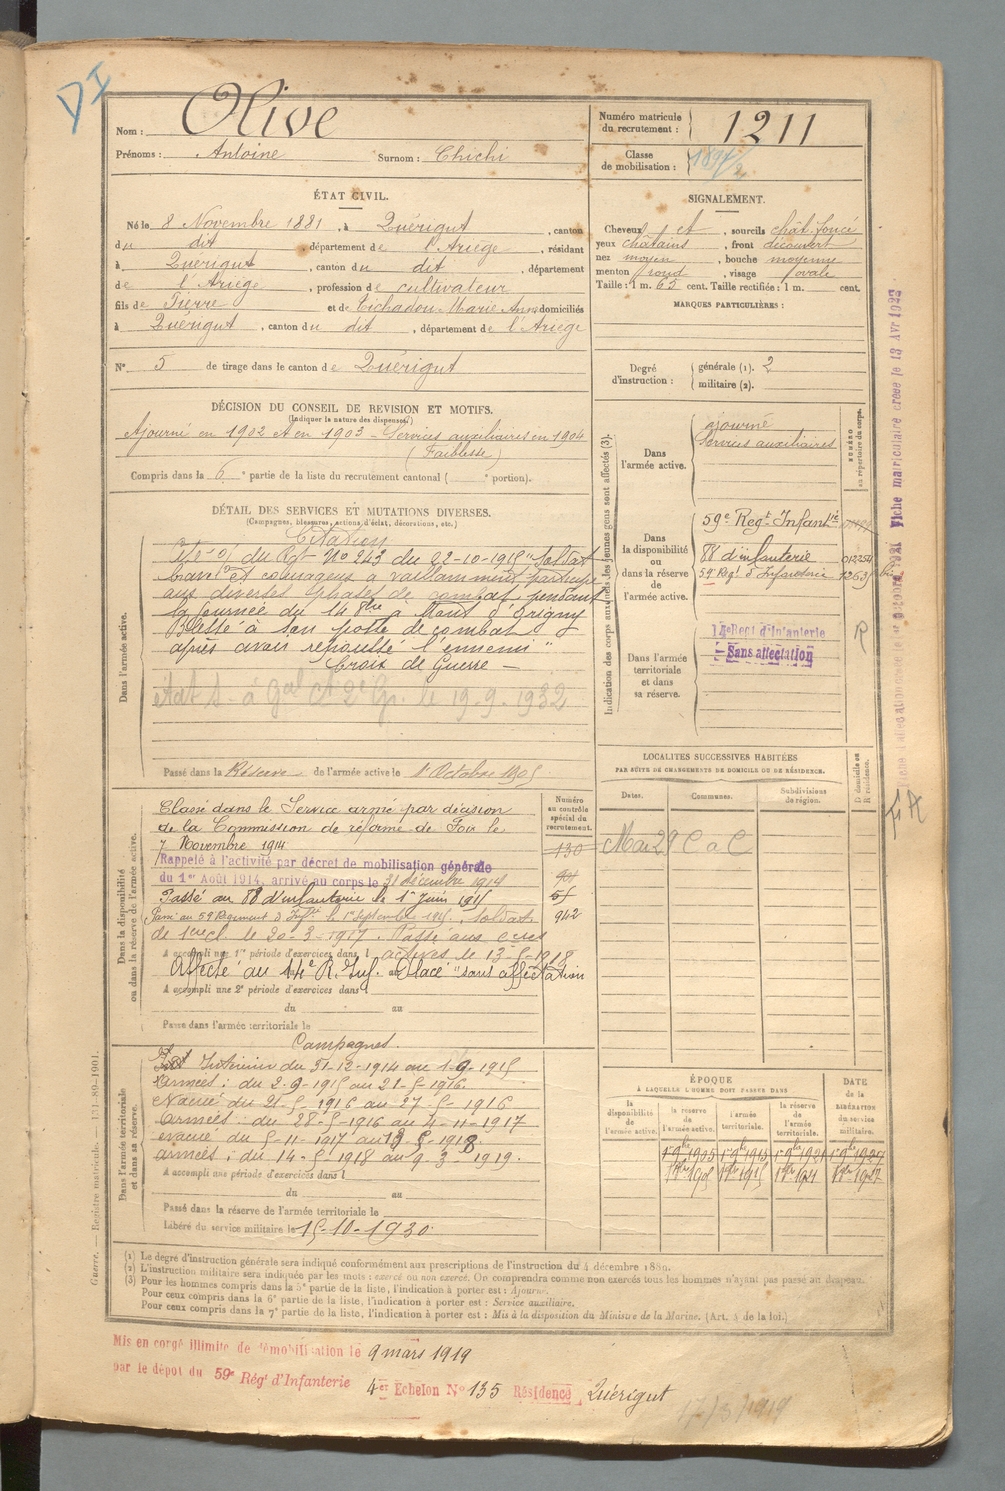 DI
Nom : Olive
Numéro matricule du recrutement : 1211
Prénoms : Antoine Surnom : Chichi
Classe de mobilisation :
ÉTAT CIVIL.
Né le 8 Novembre 1881, à Quérigut, canton
du dit, département de l'Ariège, résidant
à Quérigut, canton du dit, département
de l'Ariège, profession de cultivateur
fils de Pierre et de Cichadou Marie Anne domiciliés
à Quérigut, canton du dit, département de l'Ariège
SIGNALEMENT.
Cheveux et, sourcils chât foncé
yeux châtains, front découvert
nez moyen, bouche moyenne
menton rond, visage ovale
Taille : 1 m. 65 cent. Taille rectifiée : 1 m. cent.
MARQUES PARTICULIÈRES :
N° 5 de tirage dans le canton de Quérigut
Degré d'instruction : générale (1). 2
militaire (2).
DÉCISION DU CONSEIL DE REVISION ET MOTIFS.
(Indiquer la nature des dispenses)
Ajourné en 1902 et en 1903 - Services auxiliaires en 1904
(Faiblesse)
Compris dans la 6e partie de la liste du recrutement cantonal ( e portion).
DÉTAIL DES SERVICES ET MUTATIONS DIVERSES.
(Campagnes, blessures, actions d'éclat, décorations, etc.)
Dans l'armée active.
Citation
du Rgt N° 243 du 22-10-1915 "Soldat
brave et courageux a vaillamment participé
aux diverses phases de combat pendant
la journée du 14 8bre a
Blessé à son poste de combat
après avoir repoussé l'ennemi"
Croix de Guerre -
le 19-9-1932
Passé dans la Réserve de l'armée active le 1r Octobre 1905
Indication des corps auxquels les jeunes gens sont affectés (3).
NUMÉRO au répertoire du corps.
Dans l'armée active.
ajourné
Services auxiliaires
Dans la disponibilité ou dans la réserve de l'armée active.
59e Regt Infantie
88 d'infanterie 012254
59 Reg. d'Infanterie
Dans l'armée territoriale et dans sa réserve.
14e Regt d'Infanterie
Sans affectation
R
Fiche matriculaire créée le 13 Avr 1932
Dans la disponibilité ou dans la réserve de l'armée active.
Numéro au contrôle spécial du recrutement.
Classé dans le Service armé par décision
de la Commission de réforme de Foix le
7 Novembre 1914 130
Rappelé à l'activité par décret de mobilisation générale
du 1er Août 1914, arrivé au corps le 31 décembre 1914
Passé au 88 d'infanterie le 1r Juin 1915
Passé au 59 Régiment d'Infie le 1er septembre 1915. Soldat 942
de 1ere cl. le 20-3-1917. Passé aux
A accompli une 1re période d'exercices dans l
Affecté au 14e R. Inf. Placé "sans affectation
A accompli une 2e période d'exercices dans l
du au
Passé dans l'armée territoriale le
LOCALITÉS SUCCESSIVES HABITÉES
PAR SUITE DE CHANGEMENTS DE DOMICILE OU DE RÉSIDENCE.
Dates. Communes. Subdivisions de région. D domicile ou R résidence.
Mai 29 C a C
Dans l'armée territoriale et dans sa réserve.
Campagnes.
Intérieur du 31-12-1914 au 1-9-1915
Armées : du 2-9-1915 au 21-5-1916.
Evacué du 21-5-1916 au 27-5-1916
Armées : du 28-5-1916 au 4-11-1917
evacué du 5-11-1917 au 13-5-1918.
armées : du 14-5-1918 au 9-3-1919.
A accompli une période d'exercices dans l
du au
Passé dans la réserve de l'armée territoriale le
Libéré du service militaire le 15-10-1930.
ÉPOQUE
À LAQUELLE L'HOMME DOIT PASSER DANS
la disponibilité de l'armée active. la réserve de l'armée active. l'armée territoriale. la réserve de l'armée territoriale. DATE de la LIBÉRATION du service militaire.
Guerre. — Registre matricule. — 131-89-1901.
(1) Le degré d'instruction générale sera indiqué conformément aux prescriptions de l'instruction du 4 décembre 1889.
(2) L'instruction militaire sera indiquée par les mots : exercé ou non exercé. On comprendra comme non exercés tous les hommes n'ayant pas passé au drapeau.
(3) Pour les hommes compris dans la 5e partie de la liste, l'indication à porter est : Ajourné.
Pour ceux compris dans la 6e partie de la liste, l'indication à porter est : Service auxiliaire.
Pour ceux compris dans la 7e partie de la liste, l'indication à porter est : Mis à la disposition du Ministre de la Marine. (Art. 4 de la loi.)
Mis en congé illimité de démobilisation le 9 mars 1919
par le dépôt du 59e Régt d'Infanterie 4er Echelon N° 135 Résidence Quérigut
17/3/1919